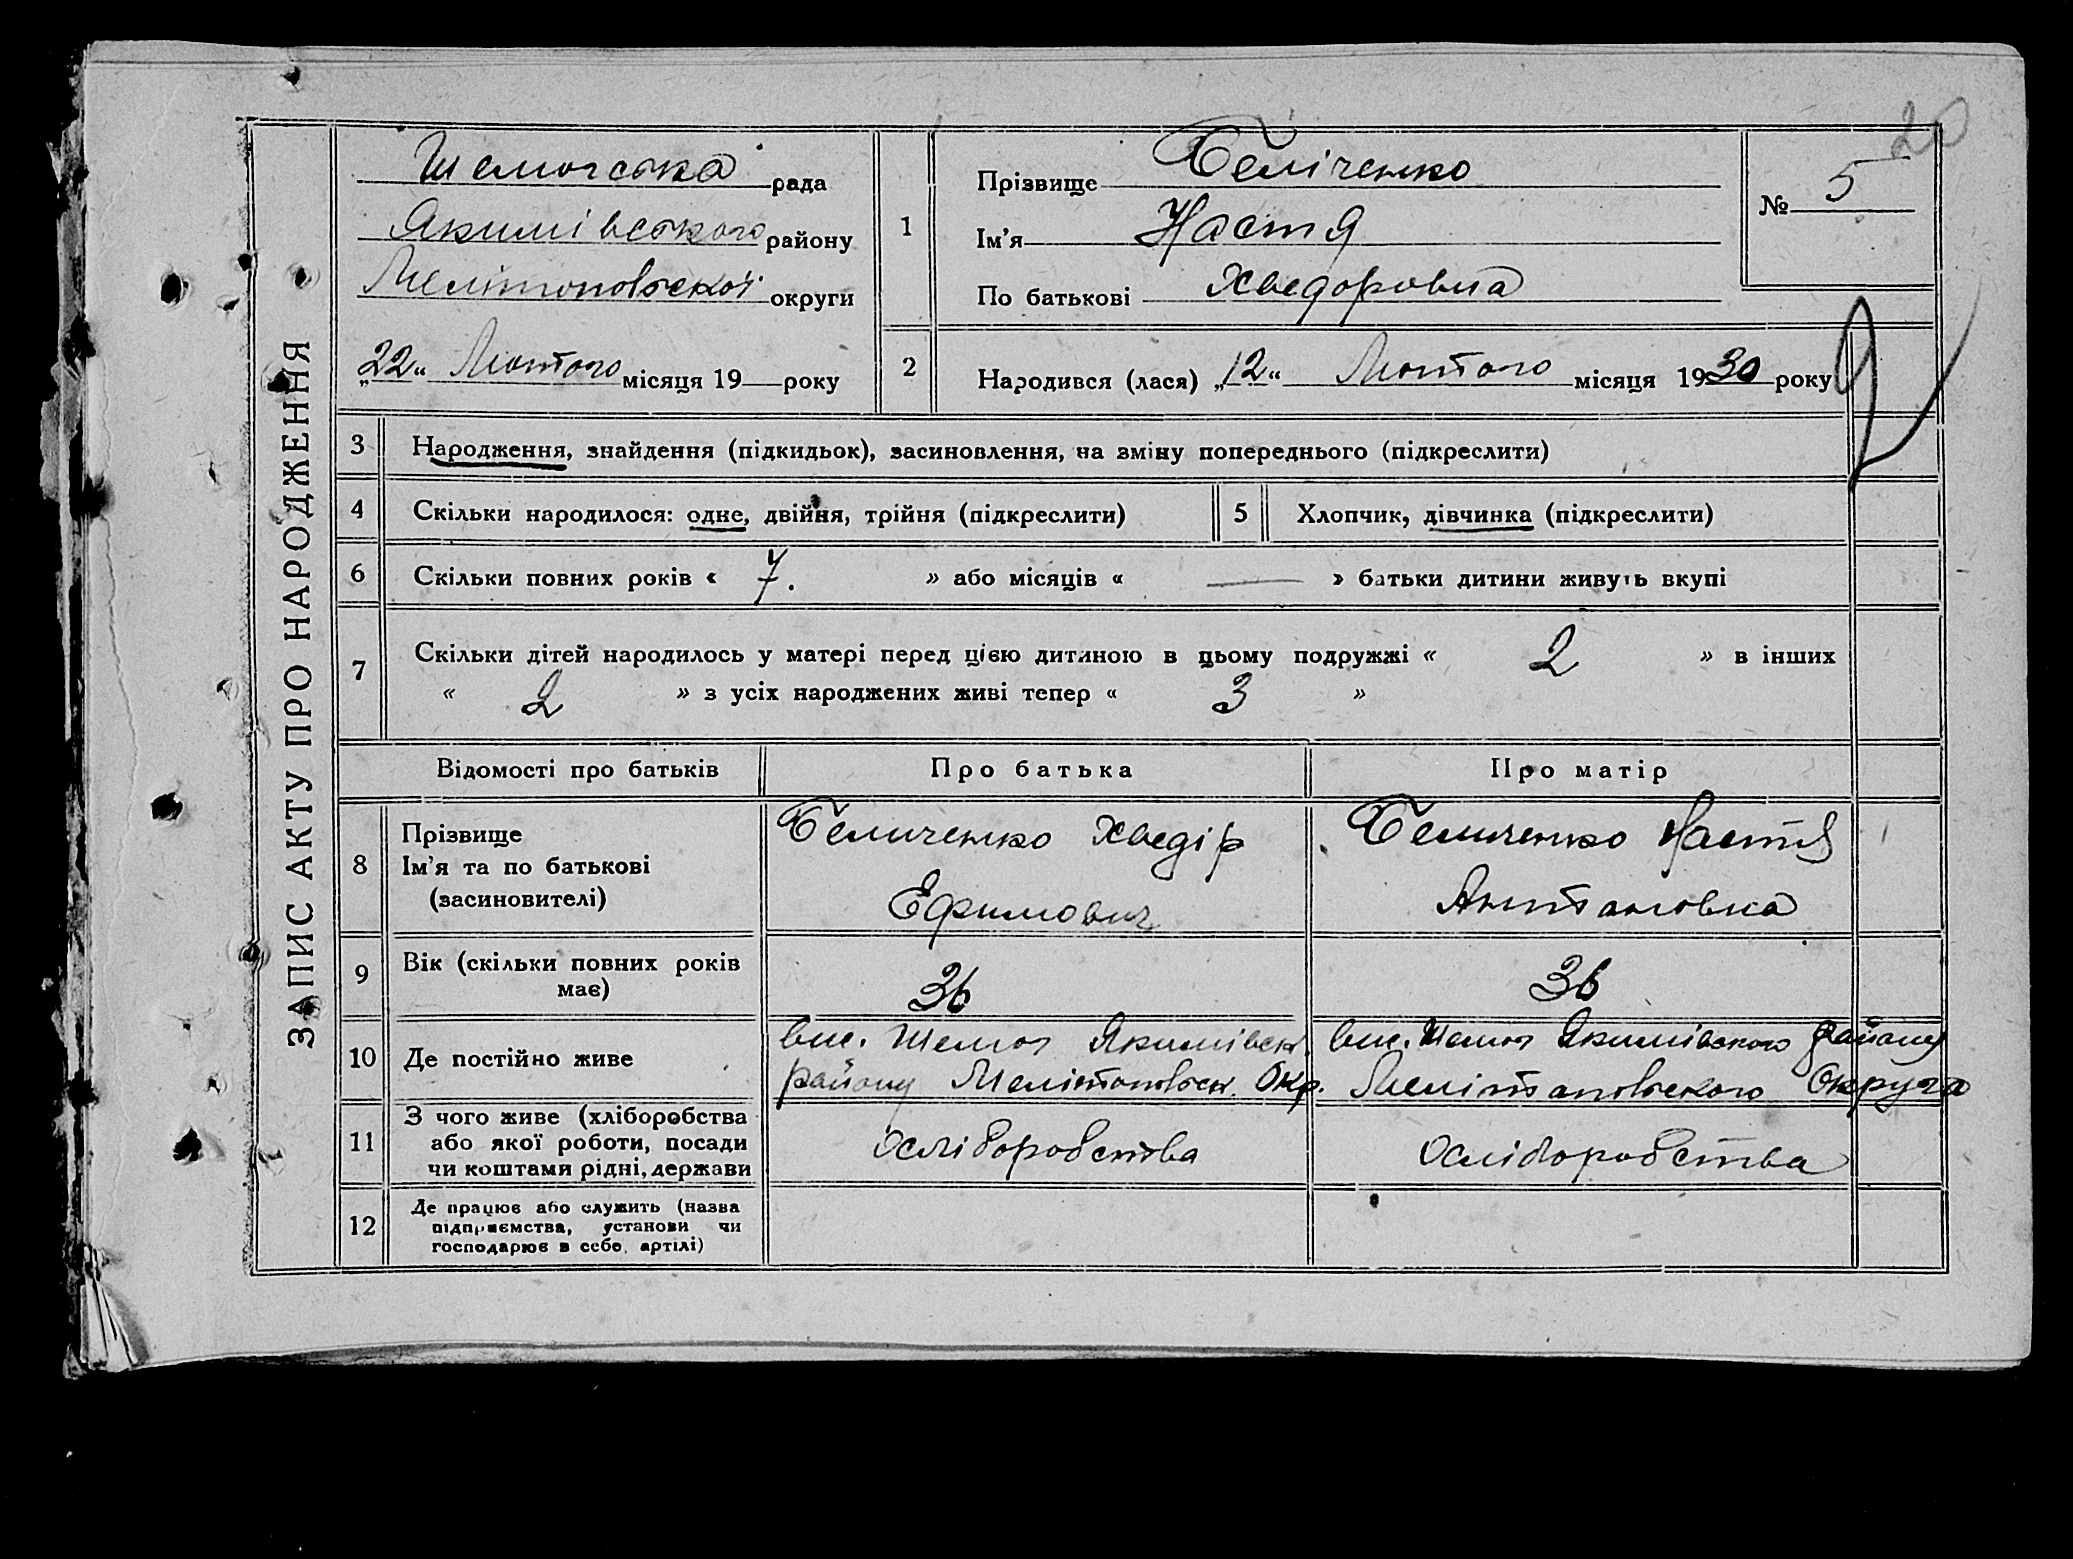 ЗАПИС АКТУ ПРО НАРОДЖЕННЯ
20
Шемогська рада
Якимівського району
Мелітопольської округи
„22“ Лютого місяця 19 року
1
Прізвище Беліченко
Ім'я Настя
По батькові Хведоровна
№ 5
2
Народився (лася) „12“ Лютого місяця 1930 року
3 Народження, знайдення (підкидьок), засиновлення, на зміну попереднього (підкреслити)
4 Скільки народилося: одне, двійня, трійня (підкреслити) 5 Хлопчик, дівчинка (підкреслити)
6 Скільки повних років « 7. » або місяців « — » батьки дитини живуть вкупі
7 Скільки дітей народилось у матері перед цією дитиною в цьому подружжі « 2 » в інших
« 2 » з усіх народжених живі тепер « 3 »
Відомості про батьків Про батька Про матір
8 Прізвище
Ім'я та по батькові
(засиновителі)
Беличенко Хведір
Ефимович
Беличенко Настя
Антановна
9 Вік (скільки повних років
має)
36
36
10 Де постійно живе
вис. Шемог Якимівськ.
району Мелітопольськ. Окр.
вис. Шемог Якимівского району
Мелітапольского Округа
11 З чого живе (хліборобства
або якої роботи, посади
чи коштами рідні, держави
Хліборобства
Хліборобства
12 Де працює або служить (назва
підприємства, установи чи
господарює в себе, артілі)